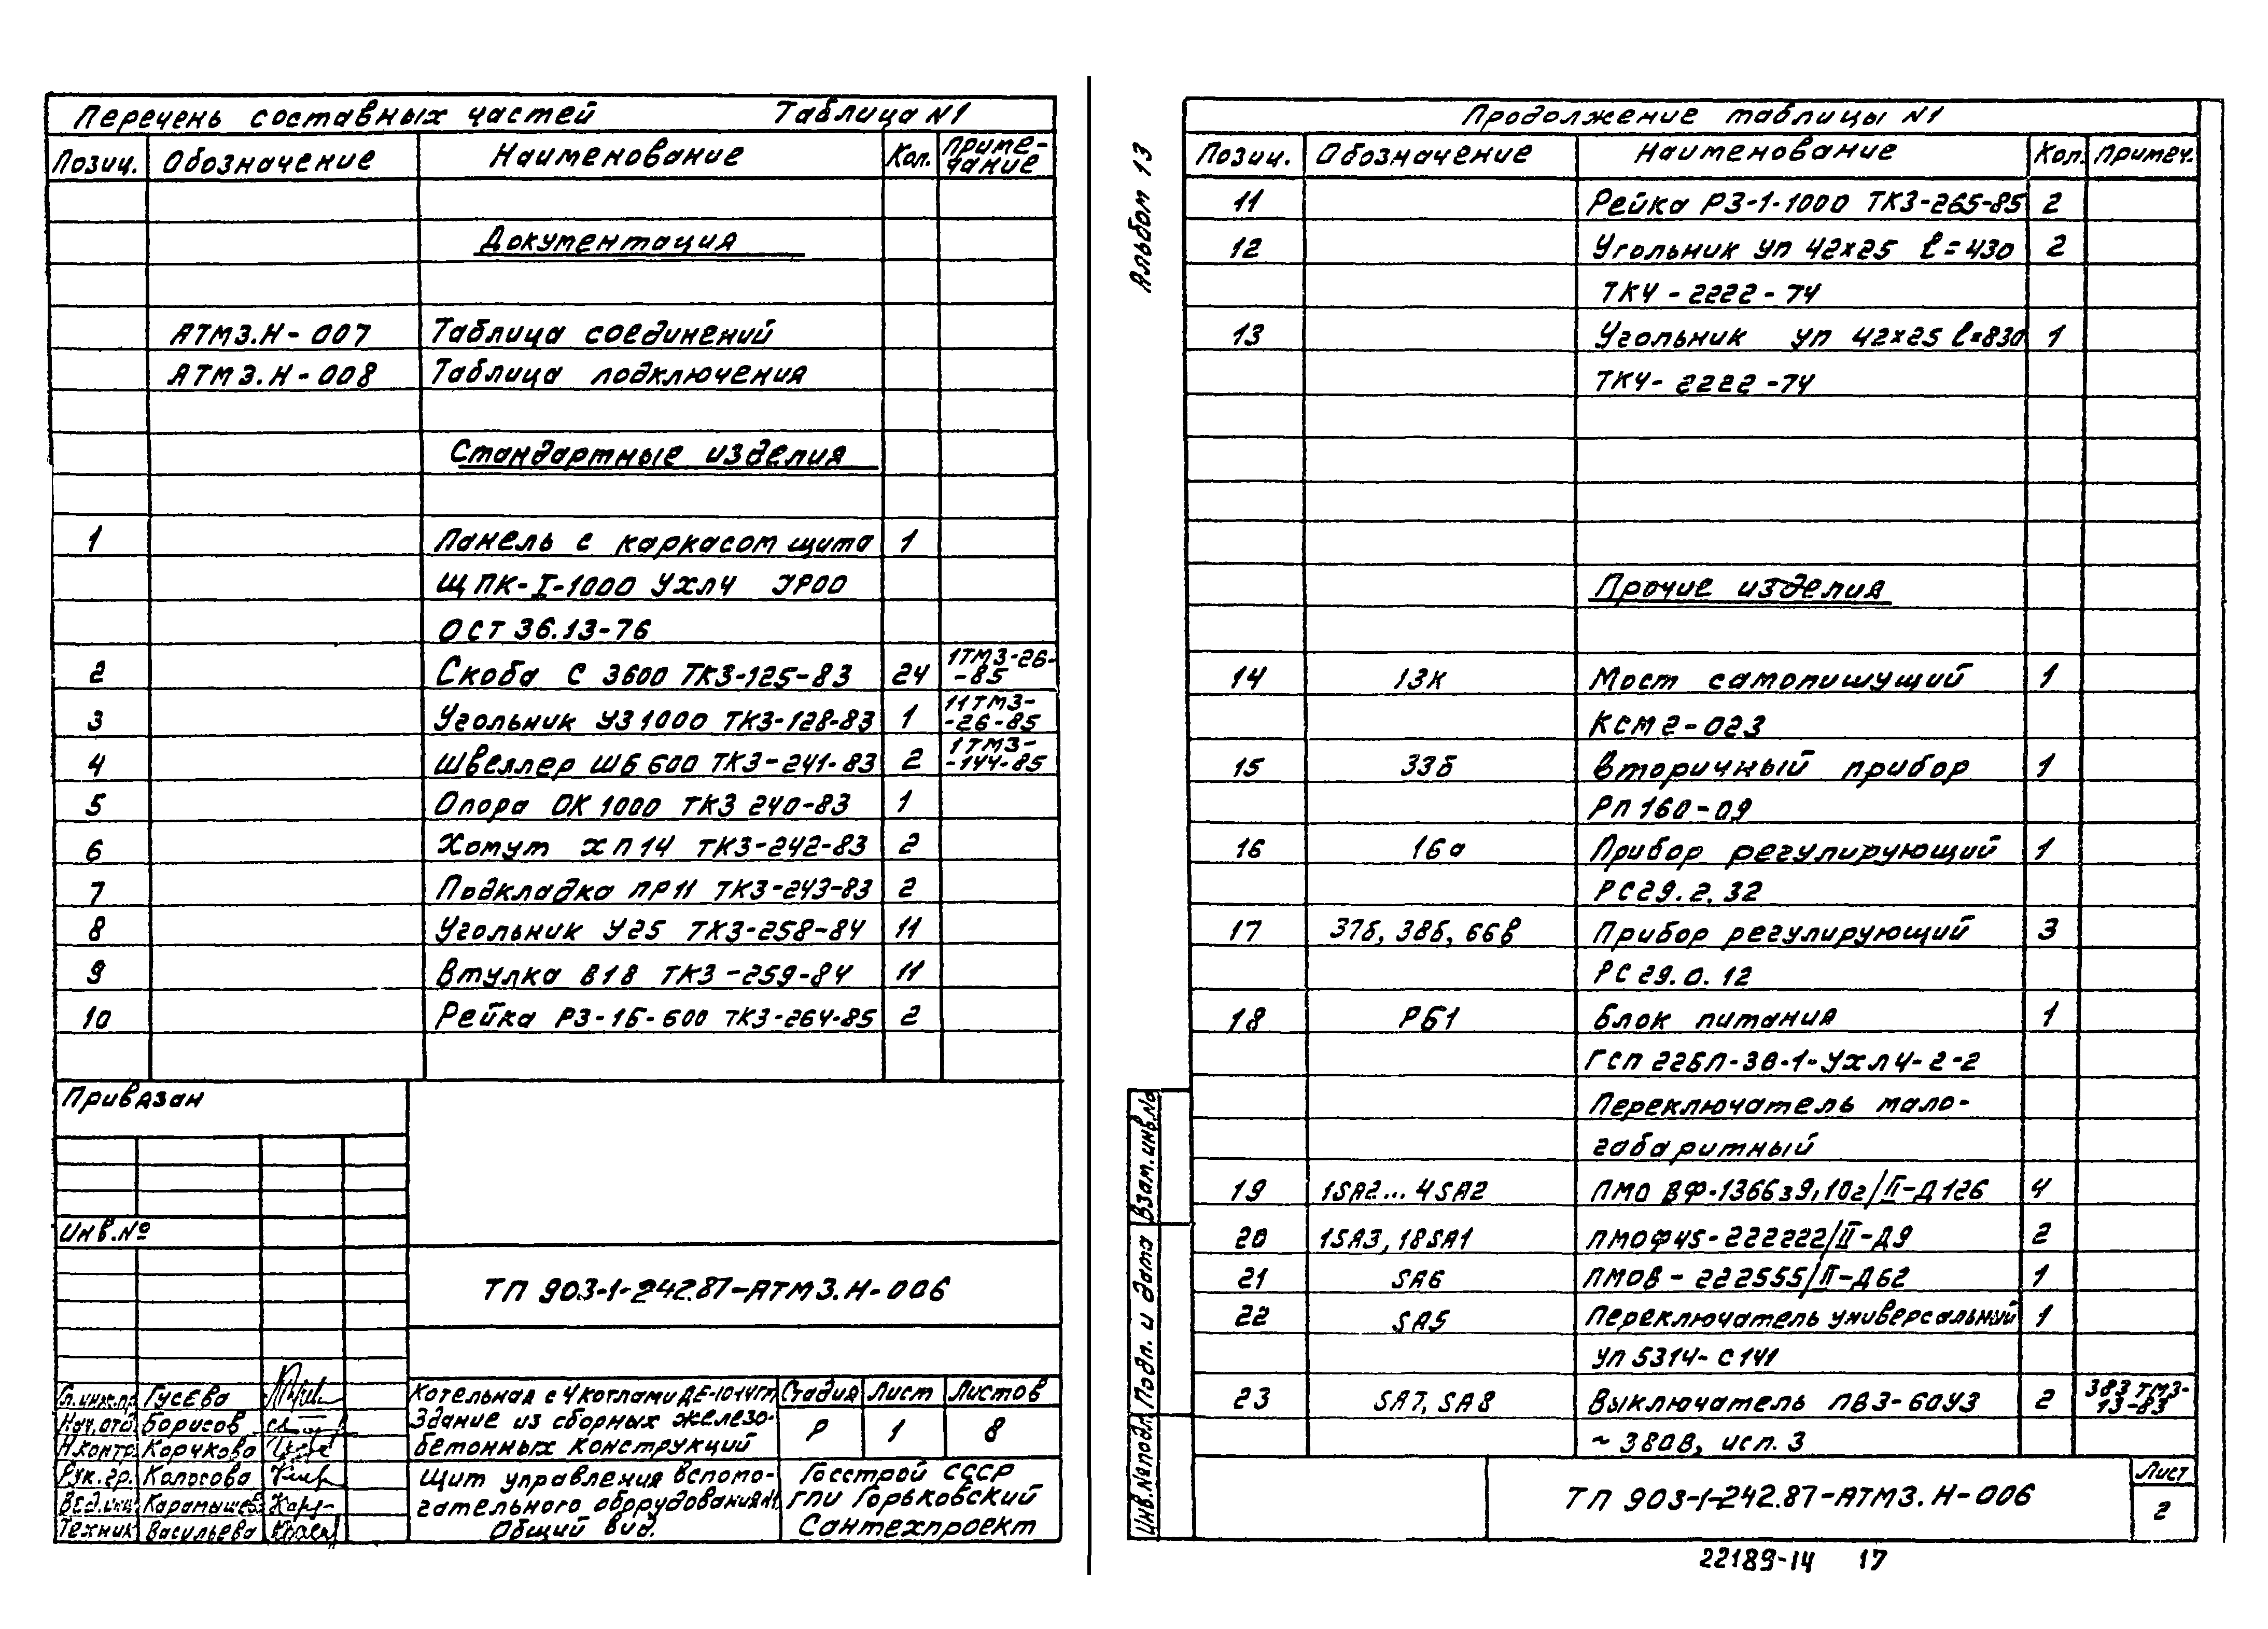 Перечень составных частей Таблица N1
Позиц. Обозначение Наименование Кол. Приме-
чание
Документация
АТМ3.Н-007 Таблица соединений
АТМ3.Н-008 Таблица подключения
Стандартные изделия
1 Панель с каркасом щита 1
ЩПК-I-1000 УХЛ4 IP00
ОСТ 36.13-76
2 Скоба С 3600 ТК3-125-83 24 1ТМ3-26-
-85
3 Угольник У3 1000 ТК3-128-83 1 11ТМ3-
-26-85
4 Швеллер ШБ 600 ТК3-241-83 2 1ТМ3-
-144-85
5 Опора ОК 1000 ТК3 240-83 1
6 Хомут ХП14 ТК3-242-83 2
7 Подкладка ПР11 ТК3-243-83 2
8 Угольник У25 ТК3-258-84 11
9 Втулка В18 ТК3-259-84 11
10 Рейка Р3-1Б-600 ТК3-264-85 2
Привязан
Инв.№
ТП 903-1-242.87-АТМ3.Н-006
Гл.инж.пр. Гусева
Нач.отд. Борисов
Н.контр. Корчкова
Рук.гр. Колосова
Вед.инж.
Техник Васильева
Котельная с 4 котлами ДЕ-10-14ГМ
Здание из сборных железо-
бетонных конструкций
Стадия Лист Листов
Р 1 8
Щит управления вспомо-
гательного оборудования №1.
Общий вид.
Госстрой СССР
ГПИ Горьковский
Сантехпроект
Альбом 13
Продолжение таблицы N1
Позиц. Обозначение Наименование Кол. Примеч.
11 Рейка Р3-1-1000 ТК3-265-85 2
12 Угольник УП 42х25 ℓ=430 2
ТК4-2222-74
13 Угольник УП 42х25 ℓ=830 1
ТК4-2222-74
Прочие изделия
14 13к Мост самопишущий 1
КСМ2-023
15 33б Вторичный прибор 1
РП160-09
16 16а Прибор регулирующий 1
РС29.2.32
17 37б, 38б, 66в Прибор регулирующий 3
РС29.0.12
18 РБ1 Блок питания 1
ГСП 22БП-30-1-УХЛ4-2-2
Переключатель мало-
габаритный
19 1SA2...4SA2 ПМО ВФ-1366з9,10г/II-Д126 4
20 1SA3, 18SA1 ПМОФ45-222222/II-Д9 2
21 SA6 ПМОВ-222555/II-Д62 1
22 SA5 Переключатель универсальный 1
УП5314-С141
23 SA7, SA8 Выключатель ПВ3-60У3 2 383 ТМ3-
13-83
~380В, исп. 3
Взам.инв.№
Подп. и дата
Инв.№подл.
ТП 903-1-242.87-АТМ3.Н-006
Лист
2
22189-14 17